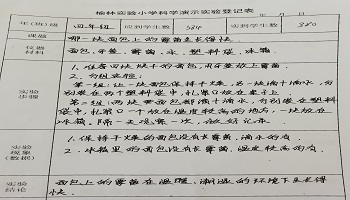 榆林实验小学科学演示实验登记表
年 月 日
年(班)级 四年级 应到学生数 384 实到学生数 380
课题 哪一块面包上的霉菌长得快
仪器材料 面包、牙签、霉菌、水、塑料袋、冰箱
实验步骤
1、准备两块干的面包,用牙签放上霉菌。
2、分组实验:
第一组:让一块面包保持干燥,另一块滴十滴水,分别装在两个塑料袋中,扎紧口放在桌子上。
第二组:两块面包都滴十滴水,分别装在塑料袋中,扎紧口一个放在温度较高的地方,一块放在冰箱。隔一天观察一次,做好记录。
实验现象(数据)
1、保持干燥的面包没有长霉菌,滴水的有
2、冰箱里的面包没有长霉菌,温度较高的有
实验结论
面包上的霉菌在温暖、潮湿的环境下生长得快。